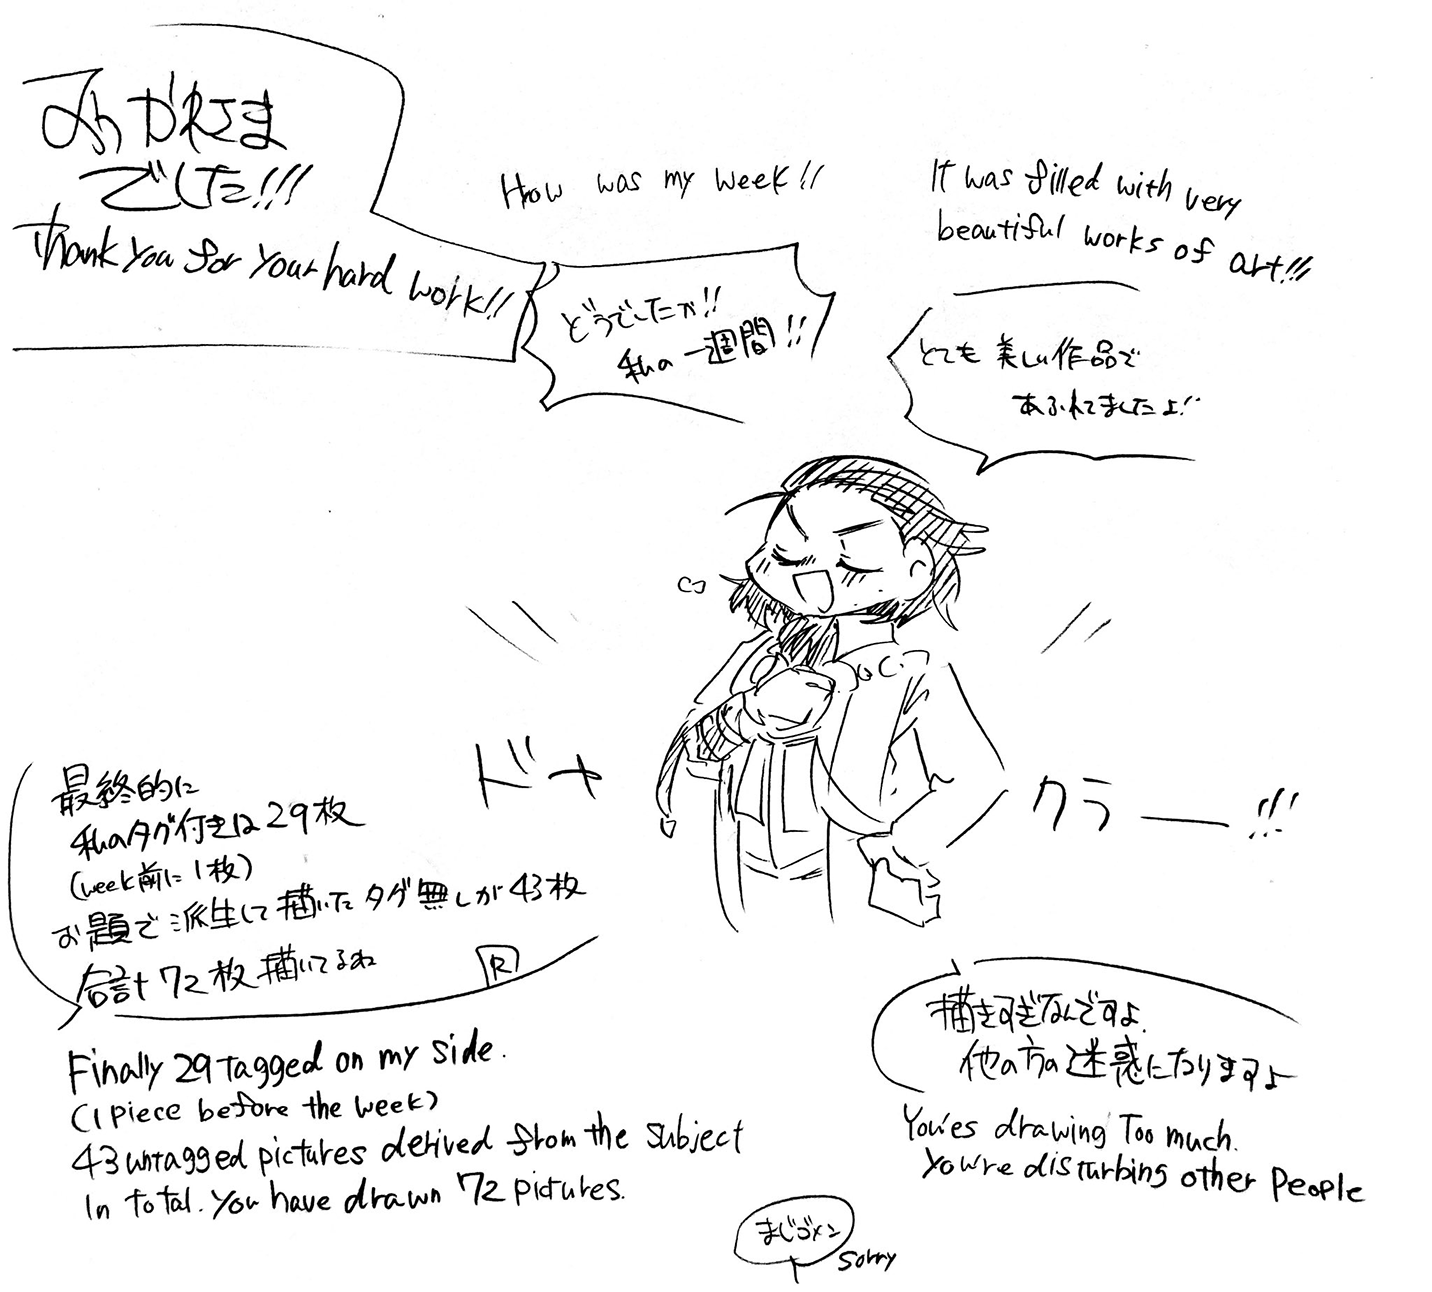 おつかれさま
でした!!!
Thank you for your hard work!!
How was my week!!
どうでしたか!!
私の一週間!!
It was filled with very
beautiful works of art!!!
とても美しい作品で
あふれてましたよ!!
ドヤ
クラー!!!
最終的に
私のタグ付きは29枚
(week前に1枚)
お題で派生して描いたタグ無しが43枚
合計72枚描いてるね
R
Finally 29 tagged on my side.
(1 piece before the week)
43 untagged pictures derived from the subject
In total. You have drawn 72 pictures.
描きすぎなんですよ.
他の方の迷惑になりますよ
You'es drawing Too much.
you're disturbing other people
まじゴメン
sorry